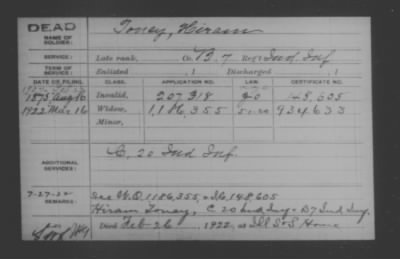 DEAD
NAME OF SOLDIER:
Toney, Hiram
SERVICE:
Late rank, Co. B. 7 Reg't Ind Inf
TERM OF SERVICE:
Enlisted , 1 Discharged , 1
DATE OF FILING. CLASS. APPLICATION NO. LAW. CERTIFICATE NO.
1875 Aug 16 Invalid, 207 318 148,605
1922 Mar 16 Widow, 1,186,355 934633
Minor,
ADDITIONAL SERVICES:
C, 20 Ind Inf
7-27-22
REMARKS:
See W.O. 1186,355, & I.C. 148,605
Hiram Toney, C 20 Ind Inf & B 7 Ind Inf,
Died Feb 26, 1922, at Ill S & S Home